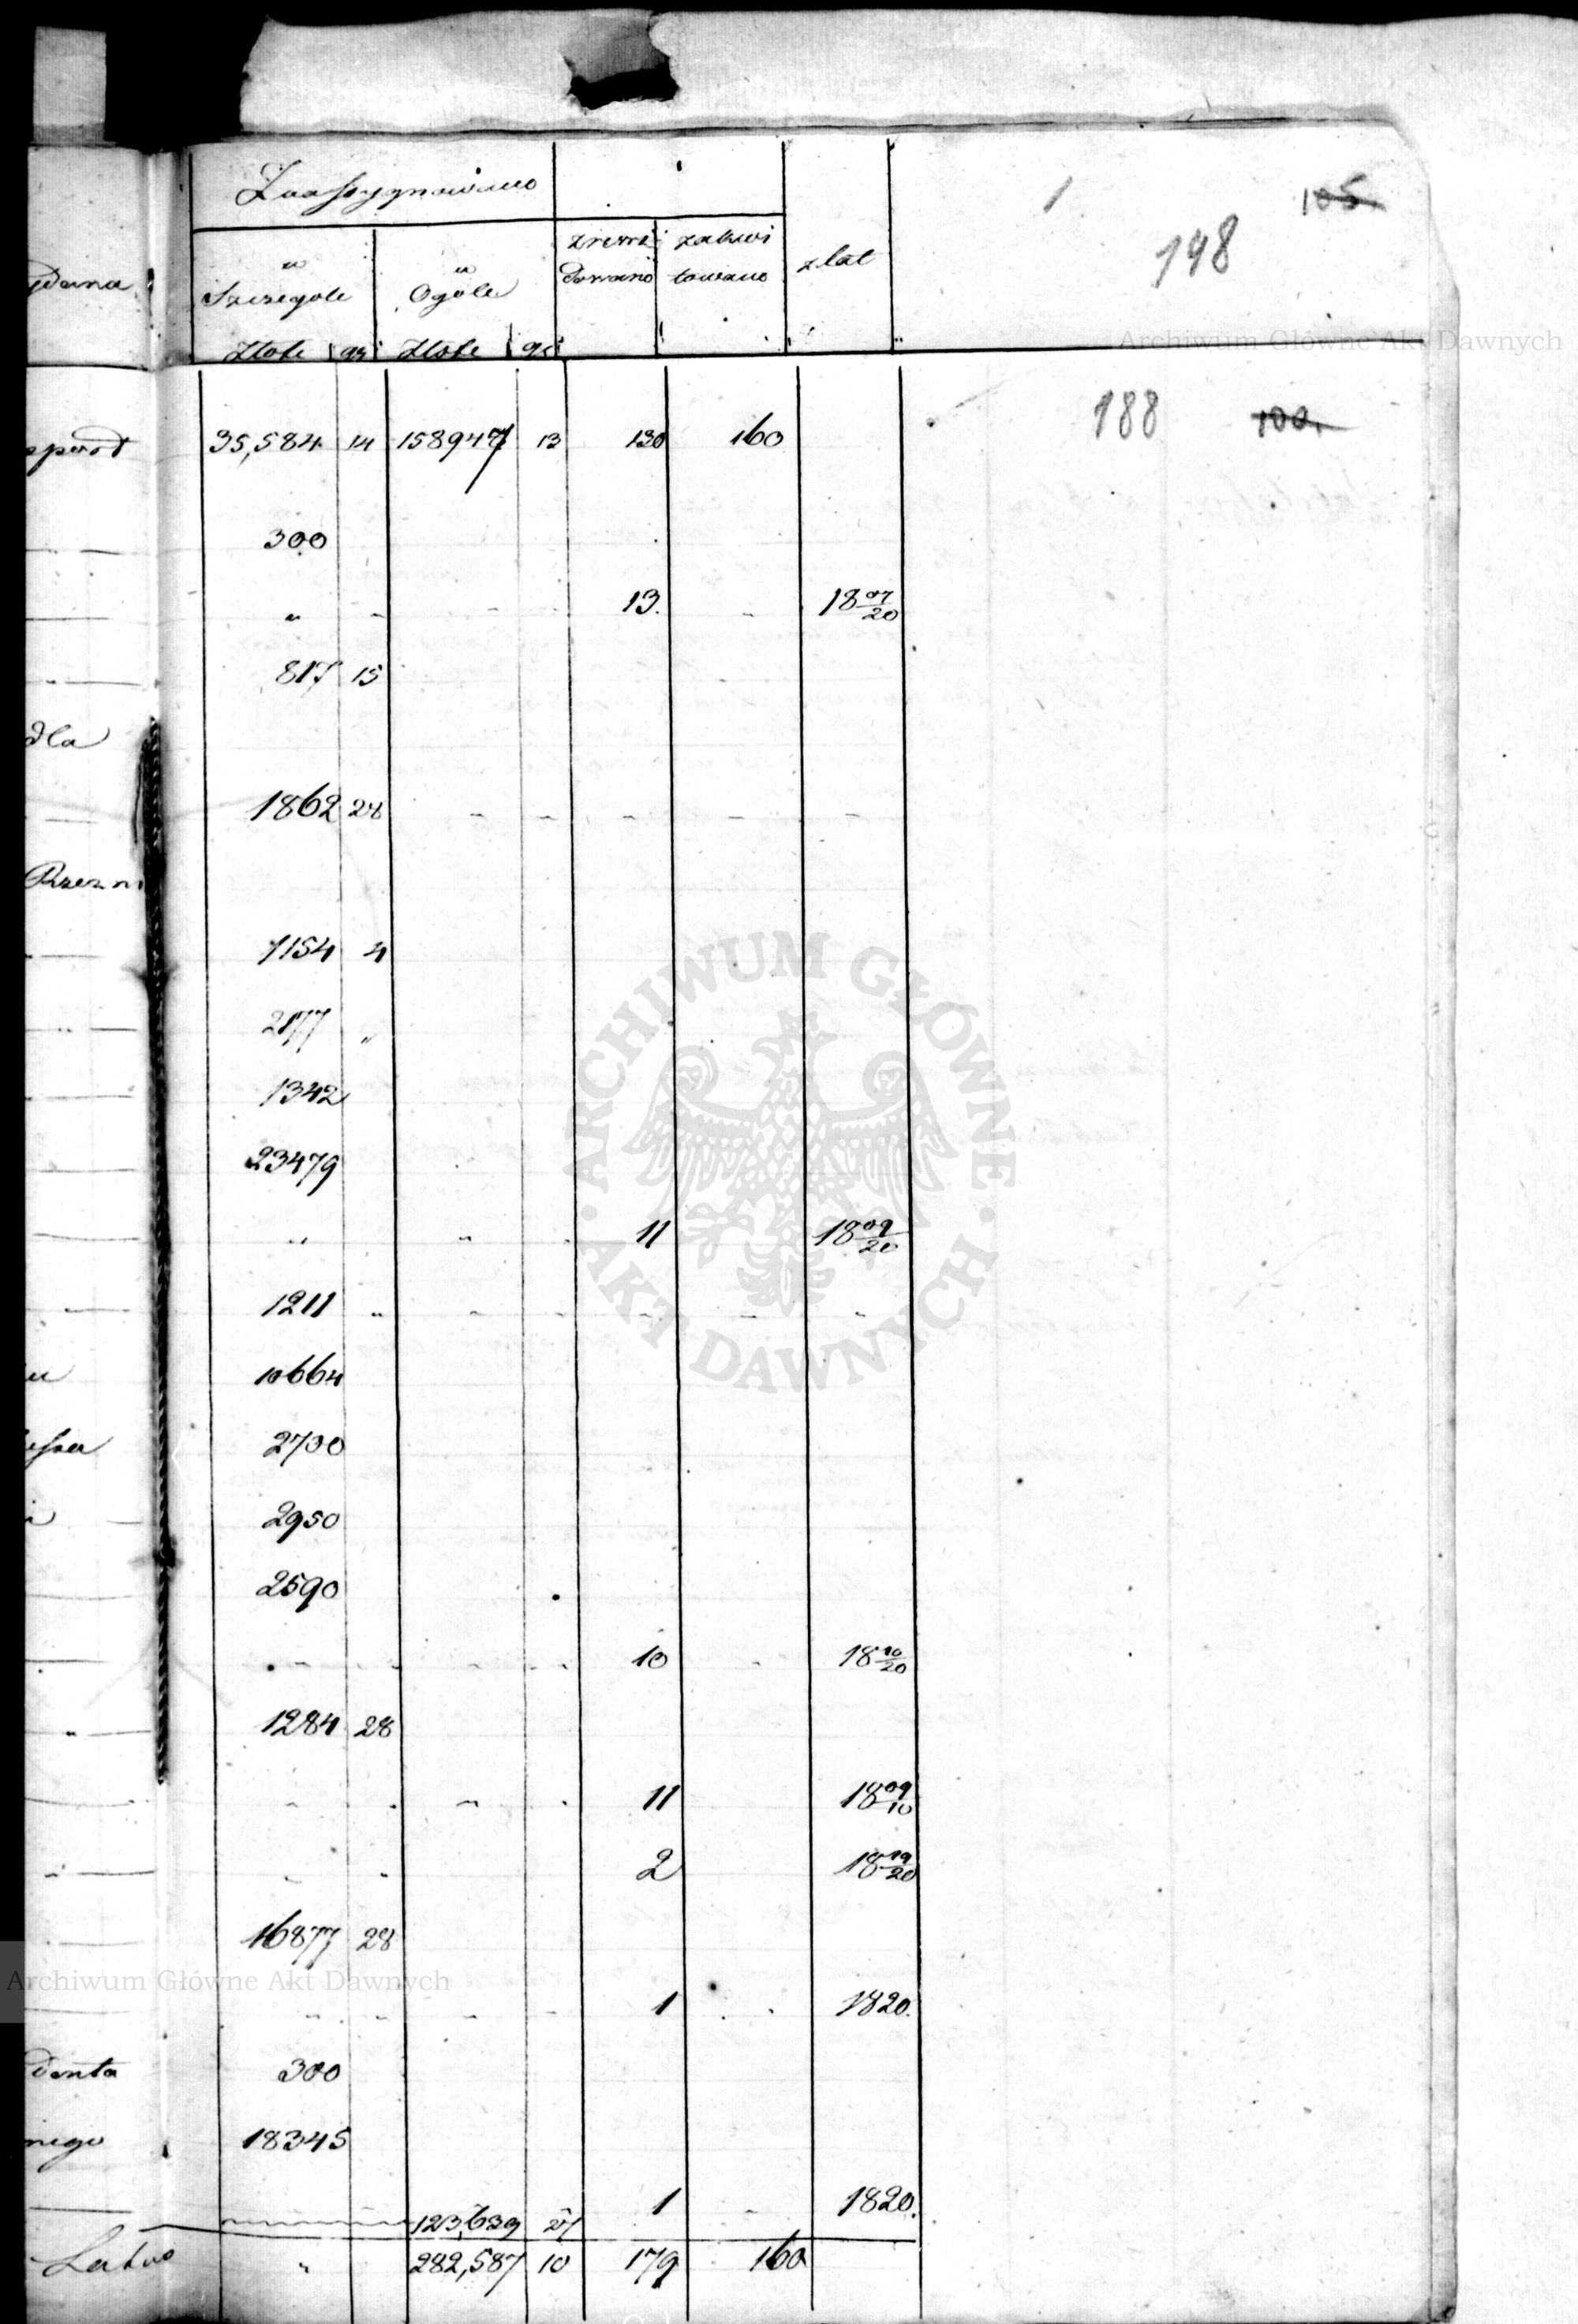 Zaassygnowano
105
198
w Szczególe
w Ogóle
zrewi dowano
zakwi towano
z lat
Złote gr Złote gr
Archiwum Główne Akt Dawnych
188 100.
35,584 14 158947 13 130 160
300
" - - - 13. - 18 07/20
817 15
dla
1862 28 - - - - -
7154 4
2177 "
1342
23479
" " 11 18 09/20
1211 " - - - - -
10664
2700
2950
2590
- - - - 10 - 18 10/20
1284 28
- - - - 11 18 09/10
- - 2 18 19/20
16877 28
Archiwum Główne Akt Dawnych
" - - - 1 - 1820.
denta 300
nego 18345
1 - 1820.
123,639 27
Latus " 282,587 10 179 160
ARCHIWUM GŁÓWNE · AKT DAWNYCH ·